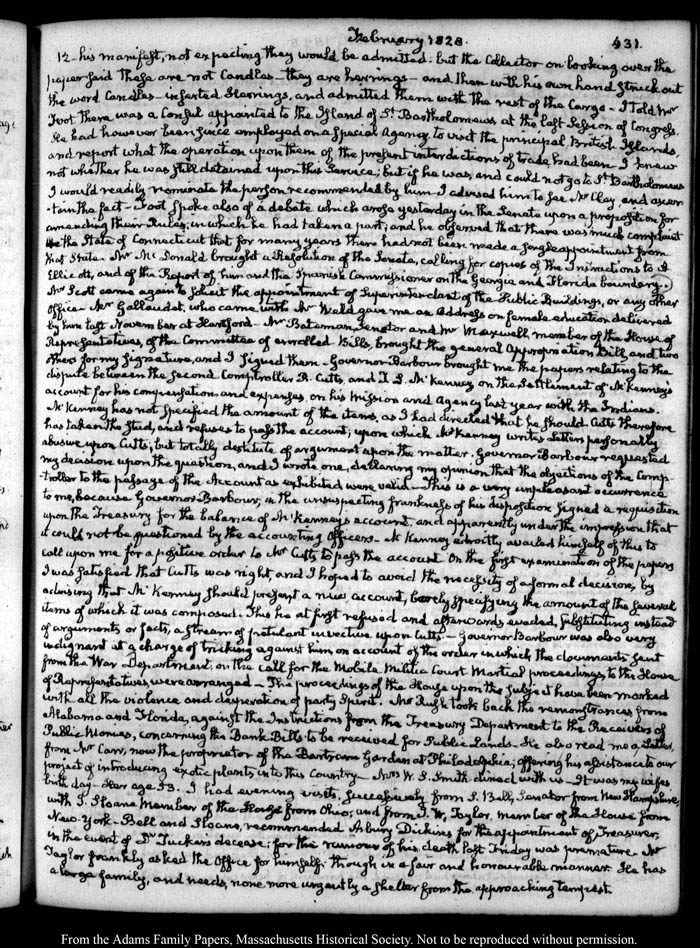 February 1828.
431.
12. his manifest, not expecting they would be admitted. but the Collector on looking over the
paper said These are not Candles—they are herrings—and then with his own hand struck out
the word Candles—inserted Herrings, and admitted them with the rest of the Cargo—I told Mr
Foot there was a Consul appointed to the Island of St. Bartholomews at the last Session of Congress.
He had however been since employed on a special Agency to visit the principal British Islands,
and report what the operation upon them of the present interdictions of trade had been. I knew
not whether he was still detained upon this Service; but if he was, and could not go to St. Bartholomews
I would readily nominate the person recommended by him. I advised him to see Mr Clay, and ascer-
-tain the fact—Foot spoke also of a debate which arose yesterday in the Senate upon a proposition for
amending their Rules, in which he had taken a part; and he observed that there was much complaint
in the State of Connecticut that for many years there had not been made a single appointment from
that State. Mr McDonald brought a Resolution of the Senate, calling for copies of the Instructions to A
Ellicott, and of the Report of him and the Spanish Commissioner on the Georgia and Florida boundary.
Mr Scott came again to solicit the appointment of Superintendent of the Public Buildings, or any other
Office. Mr Gallaudet, who came with Mr Weld gave me an Address on female education delivered
by him last November at Hartford—Mr Bateman, Senator and Mr Maxwell member of the House of
Representatives, of the Committee of enrolled Bills, brought the general Appropriation Bill, and two
others for my signature, and I signed them—Governor Barbour brought me the papers relating to the
dispute between the second Comptroller R. Cutts, and T. L. McKenney, on the settlement of McKenney's
account for his compensation and expenses, on his mission and Agency last year with the Indians.
McKenney has not specified the amount of the items, as I had directed that he should. Cutts therefore
has taken the stud, and refuses to pass the account; upon which McKenney writes letters personally
abusive upon Cutts; but totally destitute of argument upon the matter. Governor Barbour requested
my decision upon the question, and I wrote one, declaring my opinion that the objections of the Comp-
-troller to the passage of the Account as exhibited were valid—This is a very unpleasant occurrence
to me, because Governor Barbour, in the unsuspecting frankness of his disposition signed a requisition
upon the Treasury for the balance of McKenney's account, and apparently under the impression that
it could not be questioned by the accounting Officers—McKenney adroitly availed himself of this to
call upon me for a positive order to Mr Cutts to pass the account. On the first examination of the papers
I was satisfied that Cutts was right, and I hoped to avoid the necessity of a formal decision, by
advising that McKenney should present a new account, barely specifying the amount of the several
items of which it was composed. This he at first refused and afterwards evaded, substituting instead
of arguments or facts, a stream of petulant invective upon Cutts—Governor Barbour was also very
indignant at a charge of tricking against him, on account of the order in which the documents sent
from the War Department, on the call for the Mobile Militia Court Martial proceedings, to the House
of Representatives, were arranged—The proceedings of the House upon the subject have been marked
with all the violence and desperation of party Spirit. Mr Rush took back the remonstrances from
Alabama and Florida, against the Instructions from the Treasury Department to the Receivers of
Public Monies, concerning the Bank Bills to be received for Public Lands—He also read me a Letter,
from Mr Carr, now the proprietor of the Bartram Garden at Philadelphia; offering his assistance to our
project of introducing exotic plants into this Country—Mrs W. S. Smith dined with us—It was my wife's
birth day—Her age 53. I had evening visits, successively from S. Bell, Senator from New Hampshire,
with J. Sloane Member of the House from Ohio; and from J. W. Taylor, member of the House from
New-York—Bell and Sloane, recommended Asbury Dickins for the appointment of Treasurer,
in the event of Dr Tucker's decease; for the rumour of his death last Friday was premature. Mr
Taylor frankly asked the Office for himself; though in a fair and honourable manner. He has
a large family, and needs, none more urgently a shelter from the approaching tempest.
From the Adams Family Papers, Massachusetts Historical Society. Not to be reproduced without permission.